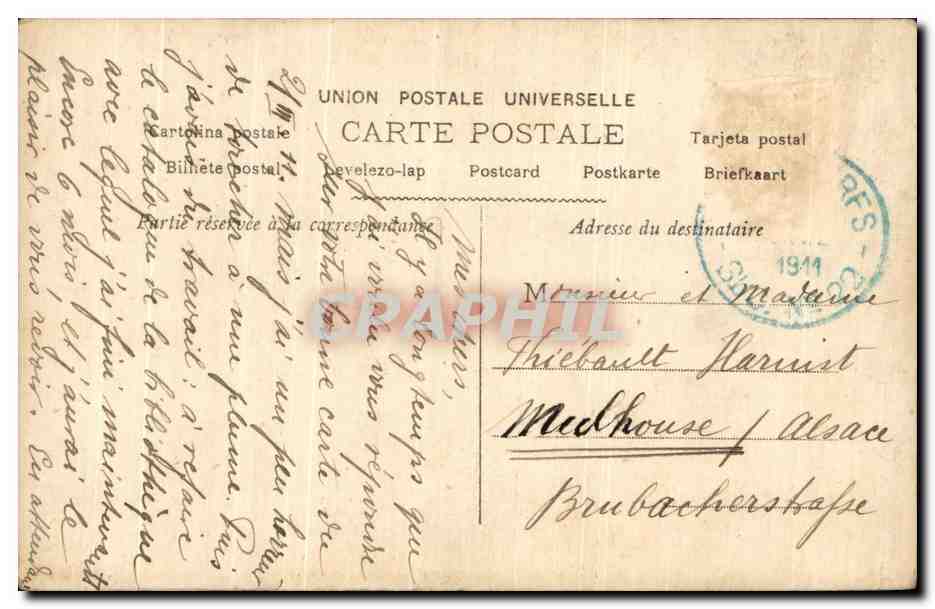 UNION POSTALE UNIVERSELLE
CARTE POSTALE
Cartolina postale
Tarjeta postal
Bilhete postal
Levelezo-lap
Postcard
Postkarte
Briefkaart
Partie réservée à la correspondance
Adresse du destinataire
1911
Monsieur et Madame
Thiébault Harnist
Mulhouse / Alsace
Brubacherstraße
Mes chers,
Il y a longtemps que
j'ai voulu vous répondre
sur votre bonne carte du
2/III 11. Mais j'ai un peu horreur
de toucher à une plume. Puis
j'avais du travail: à refaire
le catalogue de la bibliothèque
avec lequel j'ai fini maintenant
Encore 6 mois et j'aurai le
plaisir de vous revoir. En attendant
CRAPHIL